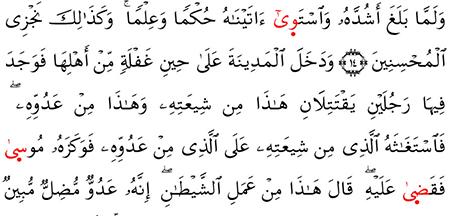 وَلَمَّا بَلَغَ أَشُدَّهُۥ وَٱسْتَوِىٰٓ ءَاتَيْنَٰهُ حُكْمًا وَعِلْمًا ۚ وَكَذَٰلِكَ نَجْزِى
ٱلْمُحْسِنِينَ ﴿١٤﴾ وَدَخَلَ ٱلْمَدِينَةَ عَلَىٰ حِينِ غَفْلَةٍ مِّنْ أَهْلِهَا فَوَجَدَ
فِيهَا رَجُلَيْنِ يَقْتَتِلَانِ هَٰذَا مِن شِيعَتِهِۦ وَهَٰذَا مِنْ عَدُوِّهِۦ ۖ
فَٱسْتَغَٰثَهُ ٱلَّذِى مِن شِيعَتِهِۦ عَلَى ٱلَّذِى مِنْ عَدُوِّهِۦ فَوَكَزَهُۥ مُوسِىٰ
فَقَضِىٰ عَلَيْهِ ۖ قَالَ هَٰذَا مِنْ عَمَلِ ٱلشَّيْطَٰنِ ۖ إِنَّهُۥ عَدُوٌّ مُّضِلٌّ مُّبِينٌ